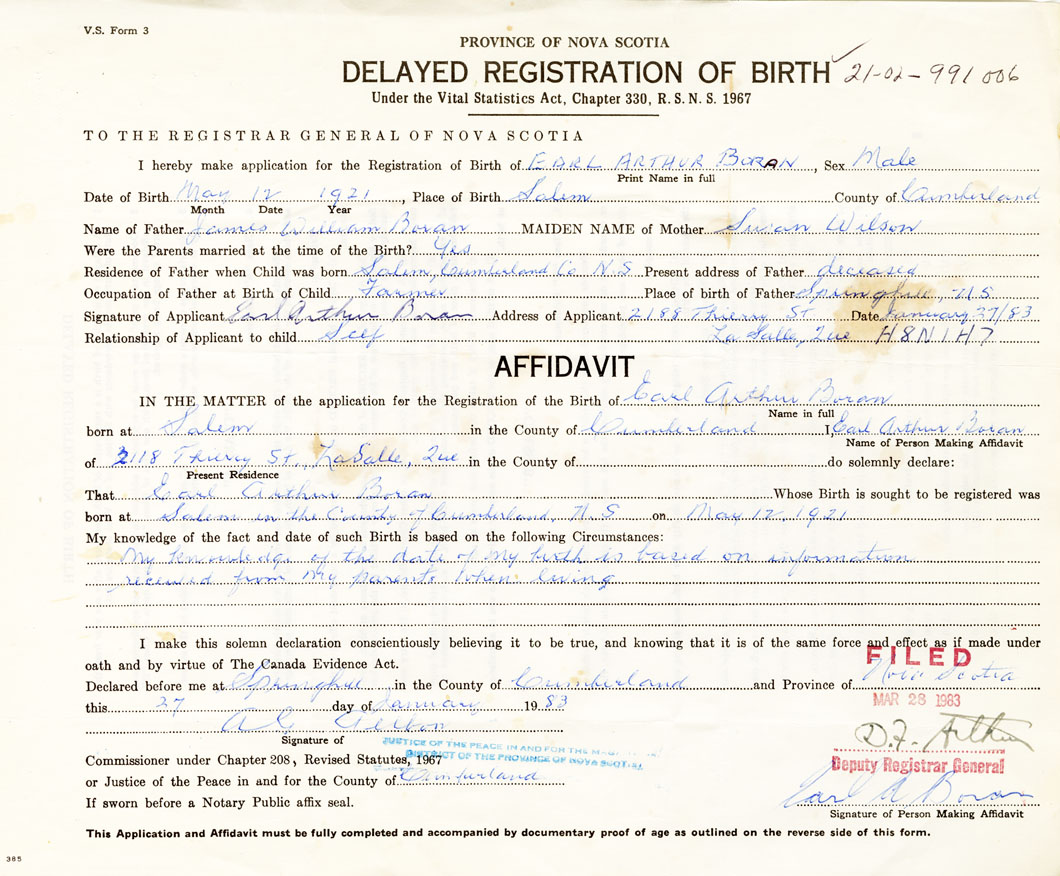 V.S. Form 3
PROVINCE OF NOVA SCOTIA
DELAYED REGISTRATION OF BIRTH 21-02-991006
Under the Vital Statistics Act, Chapter 330, R.S.N.S. 1967
TO THE REGISTRAR GENERAL OF NOVA SCOTIA
I hereby make application for the Registration of Birth of EARL ARTHUR BORAN, Sex Male
Print Name in full
Date of Birth May 12 1921, Place of Birth Salem County of Cumberland
Month Date Year
Name of Father James William Boran MAIDEN NAME of Mother Susan Wilson
Were the Parents married at the time of the Birth? Yes
Residence of Father when Child was born Salem, Cumberland Co N.S Present address of Father deceased
Occupation of Father at Birth of Child Farmer Place of birth of Father Springhill, N.S.
Signature of Applicant Earl Arthur Boran Address of Applicant 2188 Thierry St Date January 27/83
Relationship of Applicant to child Self LaSalle, Que H8N1H7
AFFIDAVIT
IN THE MATTER of the application for the Registration of the Birth of Earl Arthur Boran
Name in full
born at Salem in the County of Cumberland I, Earl Arthur Boran
Name of Person Making Affidavit
of 2118 Thierry St., LaSalle, Que in the County of do solemnly declare:
Present Residence
That Earl Arthur Boran Whose Birth is sought to be registered was
born at Salem in the County of Cumberland, N.S on May 12, 1921
My knowledge of the fact and date of such Birth is based on the following Circumstances:
My knowledge of the date of my birth is based on information
received from my parents when living
I make this solemn declaration conscientiously believing it to be true, and knowing that it is of the same force and effect as if made under
oath and by virtue of The Canada Evidence Act.
FILED
Declared before me at Springhill in the County of Cumberland and Province of Nova Scotia
this 27 day of January 1983
MAR 28 1983
Signature of
JUSTICE OF THE PEACE IN AND FOR THE
DISTRICT OF THE PROVINCE OF NOVA SCOTIA
Commissioner under Chapter 208, Revised Statutes, 1967
Deputy Registrar General
or Justice of the Peace in and for the County of Cumberland
Earl A Boran
If sworn before a Notary Public affix seal.
Signature of Person Making Affidavit
This Application and Affidavit must be fully completed and accompanied by documentary proof of age as outlined on the reverse side of this form.
385